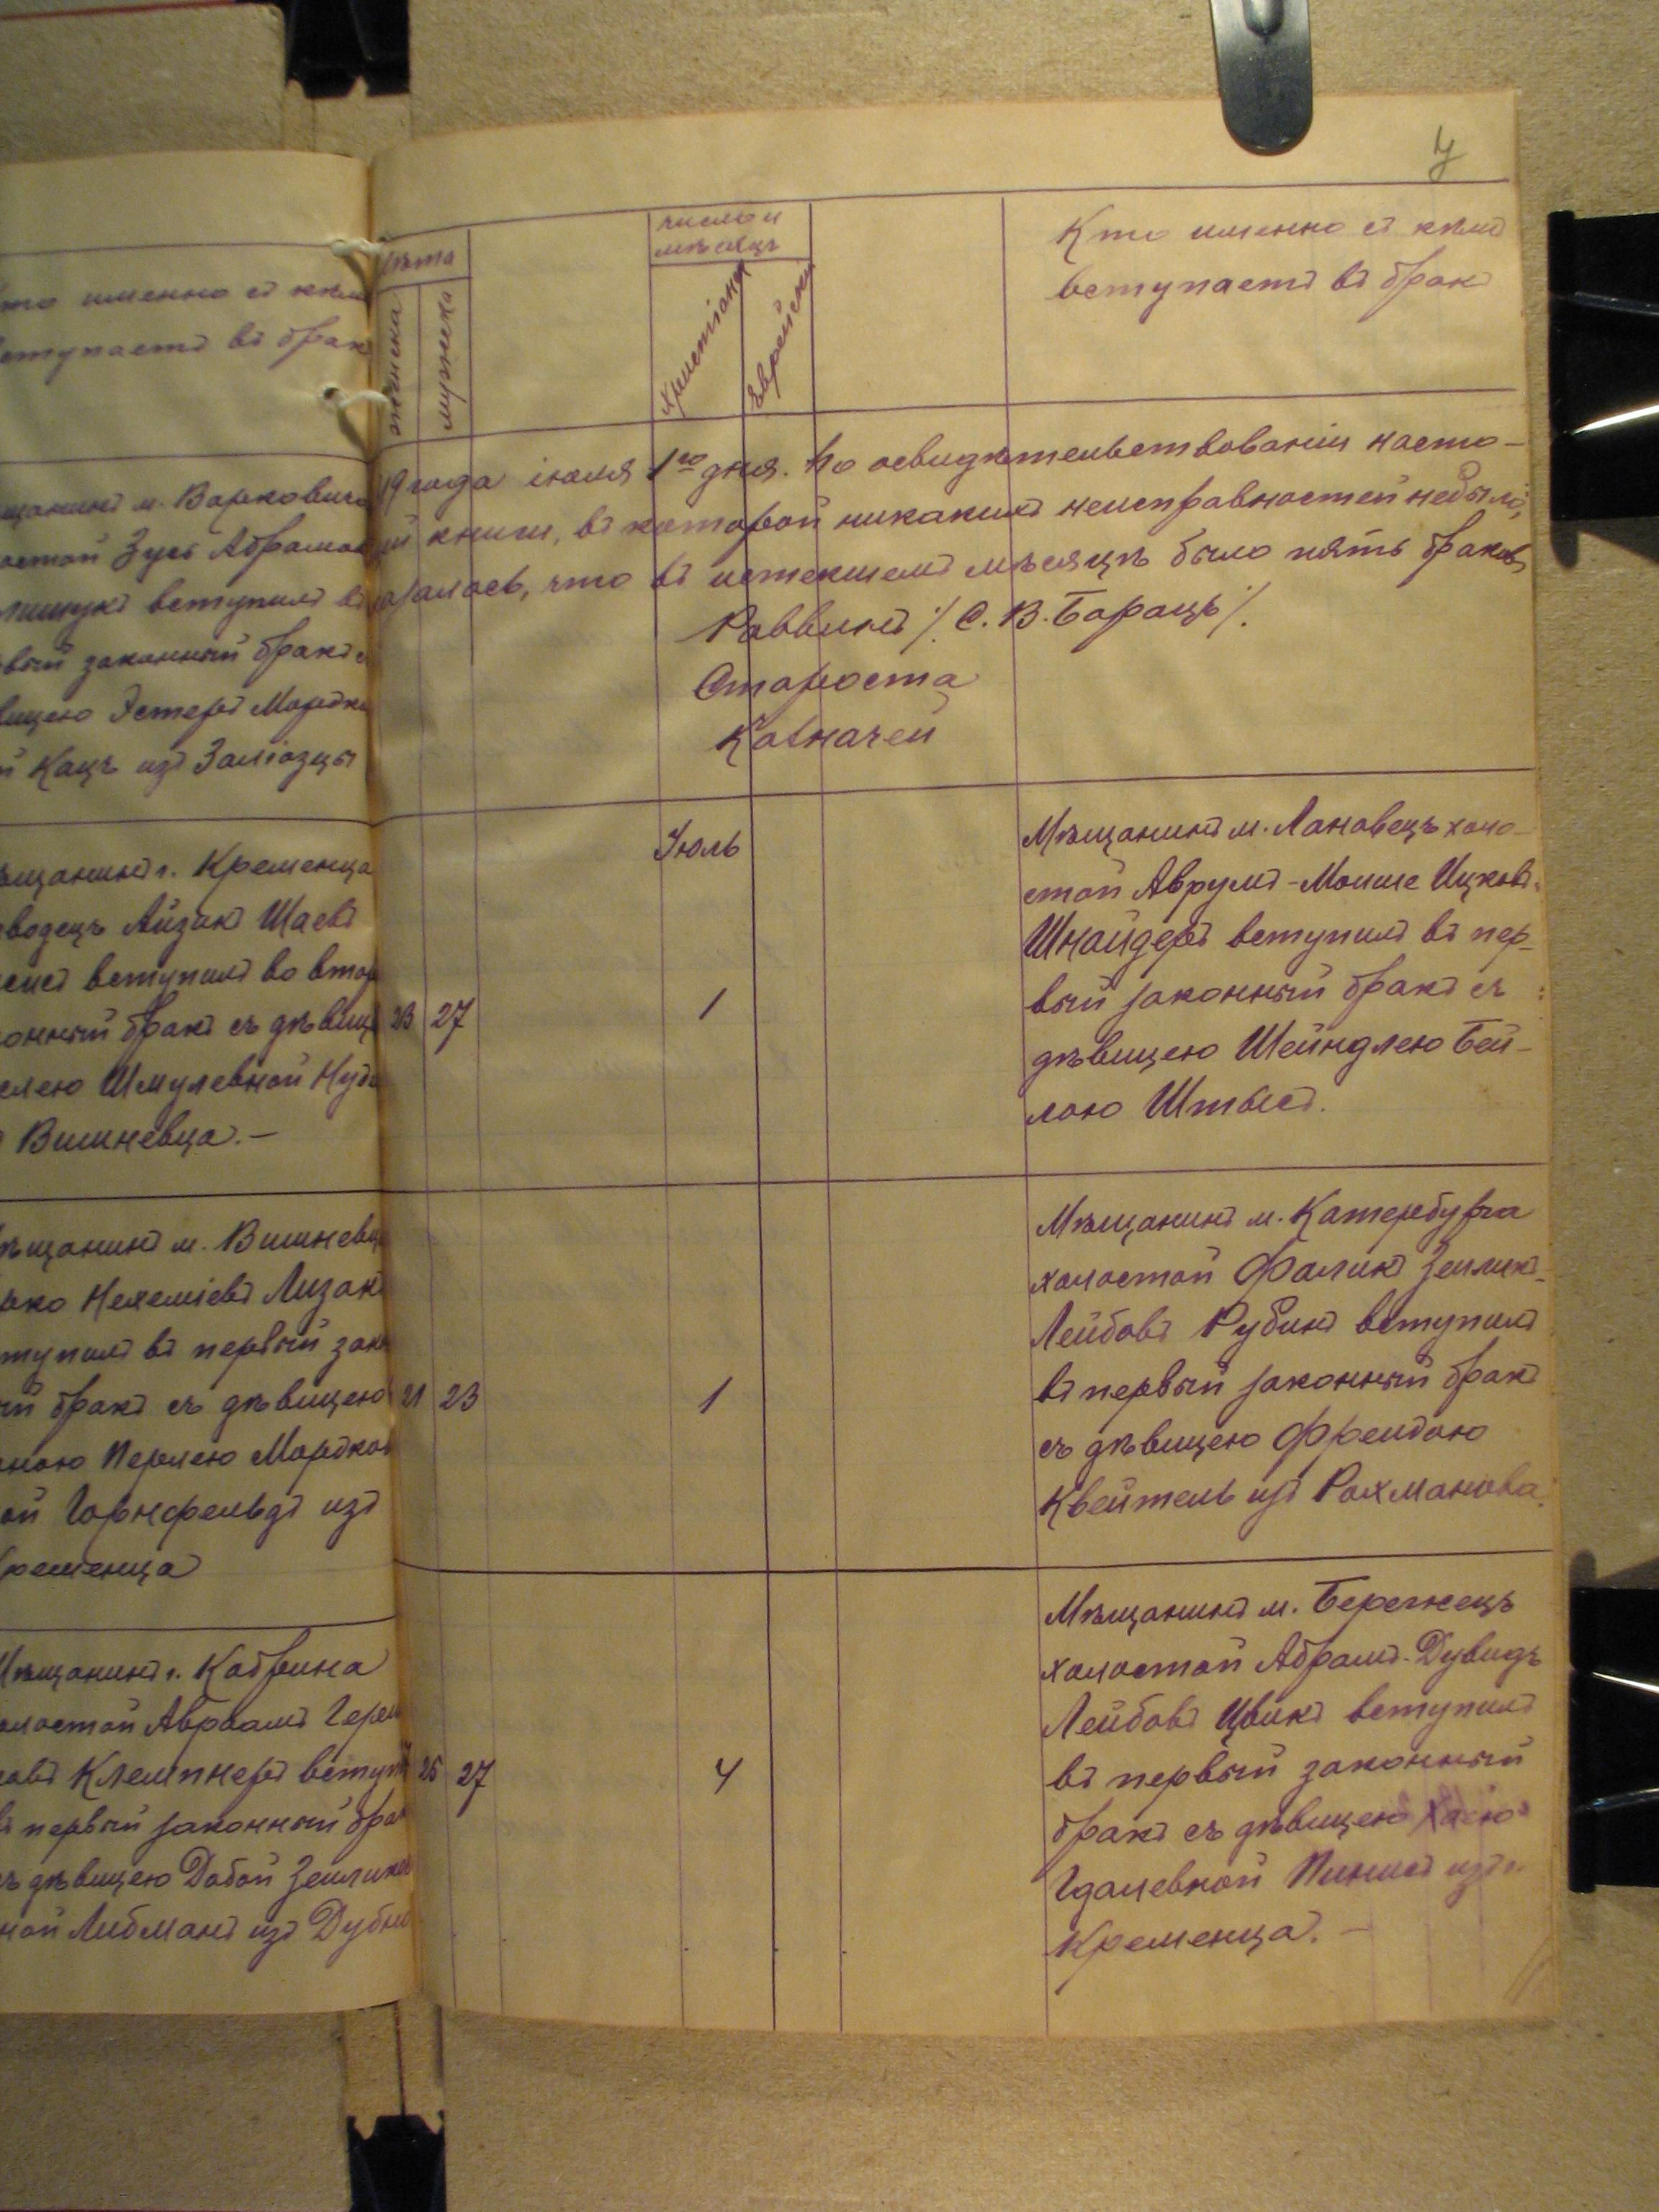 Кто именно съ кѣмъ
вступаетъ въ бракъ
щанинъ м. Варковичъ
остой Зусь Абрамов
вступилъ въ
вый законный бракъ с
вицею Эстеръ Мордко
й Кацъ изъ Заліозцы
ѣщанинъ г. Кременца
водецъ Айзикъ Шаевъ
вступилъ во втор
онный бракъ съ дѣвиц
елею Шмулевной Нуд
Вишневца.-
ѣщанинъ м. Вишневц
ько Нехеміевъ Лизак
тупилъ въ первый зак
ый бракъ съ дѣвицею
Перлею Мордков
ой Горнфельдъ изъ
ременца
Мѣщанинъ г. Кобрина
олостой Авраамъ Гер
овъ Клемпнеръ вступ
въ первый законный бра
съ дѣвицею Добой Зейлико
ной Либманъ изъ Дубно
7
лѣта
женска
мужеска
число и
мѣсяцъ
Христіанск
Еврейск
Кто именно съ кѣмъ
вступаетъ въ бракъ
19 года іюля 1го дня. По освидѣтельствованіи насто-
ей книги, въ которой никакихъ неисправностей не было,
оказалось, что въ истекшемъ мѣсяцѣ было пять браковъ
Раввинъ /. С. В. Барацъ /.
Староста
Казначей
Іюль
23 27 1
Мѣщанинъ м. Лановецъ холо-
стой Аврумъ-Моише Ицковъ
Шнайдеръ вступилъ въ пер-
вый законный бракъ съ
дѣвицею Шейндлею Бей-
лою
21 23 1
Мѣщанинъ м. Катербурга
холостой Фаликъ Зейликъ-
Лейбовъ Рубинъ вступилъ
въ первый законный бракъ
съ дѣвицею Фрейдою
Квейтель изъ Рахманова.
25 27 4
Мѣщанинъ м. Бережецъ
холостой Абрамъ-Дувидъ
Лейбовъ Цвикъ вступилъ
въ первый законный
бракъ съ дѣвицею Хаею
Гдалевной изъ г.
Кременца. -